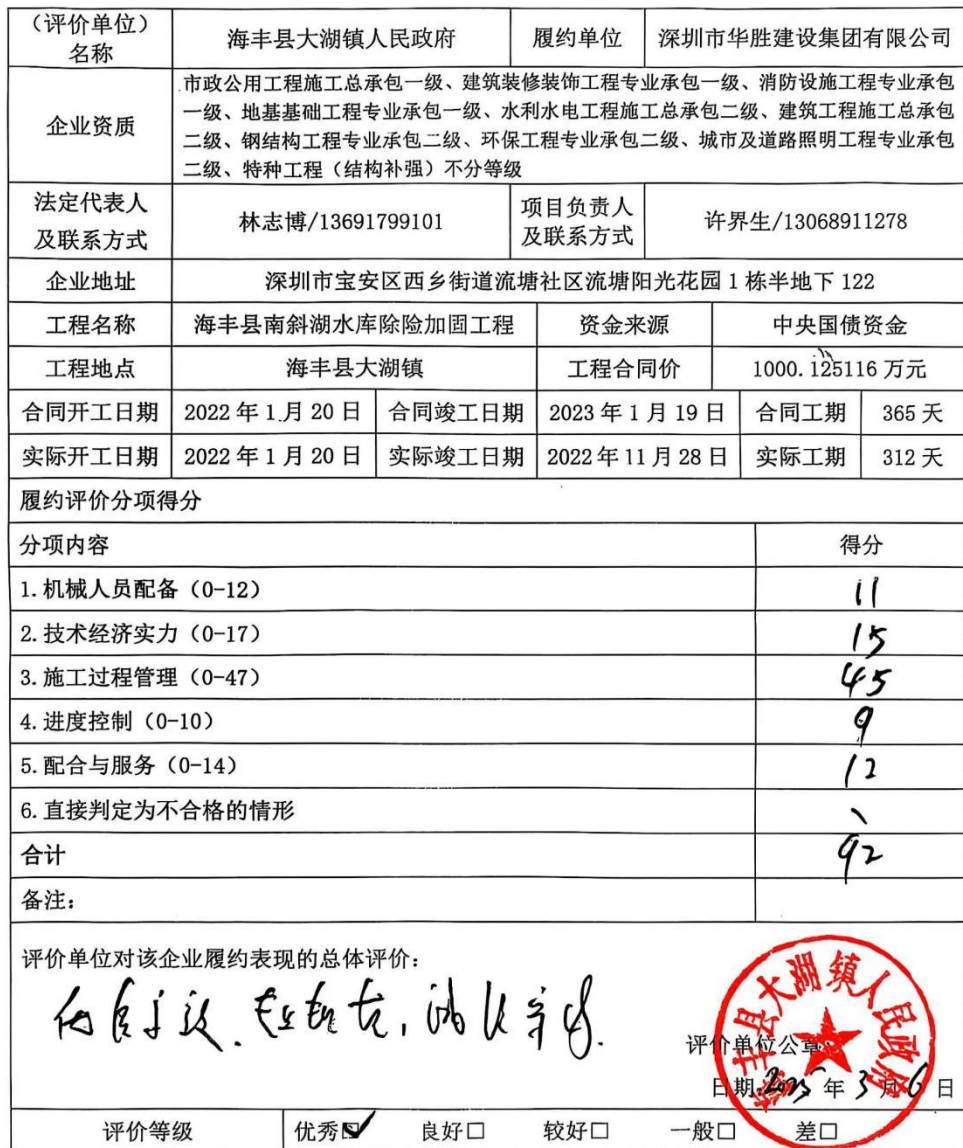 （评价单位）
名称
海丰县大湖镇人民政府
履约单位
深圳市华胜建设集团有限公司
企业资质
市政公用工程施工总承包一级、建筑装修装饰工程专业承包一级、消防设施工程专业承包
一级、地基基础工程专业承包一级、水利水电工程施工总承包二级、建筑工程施工总承包
二级、钢结构工程专业承包二级、环保工程专业承包二级、城市及道路照明工程专业承包
二级、特种工程（结构补强）不分等级
法定代表人
及联系方式
林志博/13691799101
项目负责人
及联系方式
许界生/13068911278
企业地址
深圳市宝安区西乡街道流塘社区流塘阳光花园1栋半地下122
工程名称
海丰县南斜湖水库除险加固工程
资金来源
中央国债资金
工程地点
海丰县大湖镇
工程合同价
1000.125116万元
合同开工日期
2022年1月20日
合同竣工日期
2023年1月19日
合同工期
365天
实际开工日期
2022年1月20日
实际竣工日期
2022年11月28日
实际工期
312天
履约评价分项得分
分项内容
得分
1.机械人员配备（0-12）
11
2.技术经济实力（0-17）
15
3.施工过程管理（0-47）
45
4.进度控制（0-10）
9
5.配合与服务（0-14）
12
6.直接判定为不合格的情形
、
合计
92
备注：
评价单位对该企业履约表现的总体评价：
海丰县大湖镇人民政府
评价单位公章：
日期：2025年3月6日
评价等级
优秀☑
良好□
较好□
一般□
差□